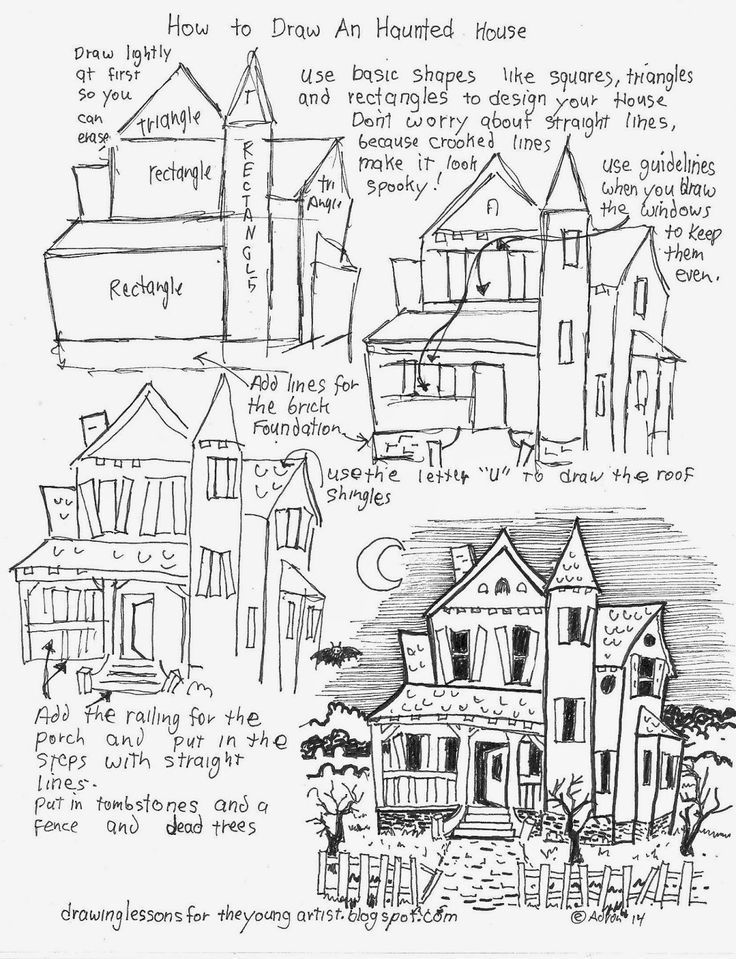 How to Draw An Haunted House
Draw lightly
at first
so you
can
erase
use basic shapes like squares, triangles
and rectangles to design your House
Don't worry about straight lines,
because crooked lines
make it look
spooky!
triangle
T
rectangle
RECTANGLE
tri
Angle
Rectangle
use guidelines
when you draw
the windows
to keep
them
even.
Add lines for
the brick
Foundation
use the letter "U" to draw the roof
shingles
Add the railing for the
porch and put in the
steps with straight
lines.
put in tombstones and a
fence and dead trees
drawinglessons for theyoung artist.blogspot.com
© '14